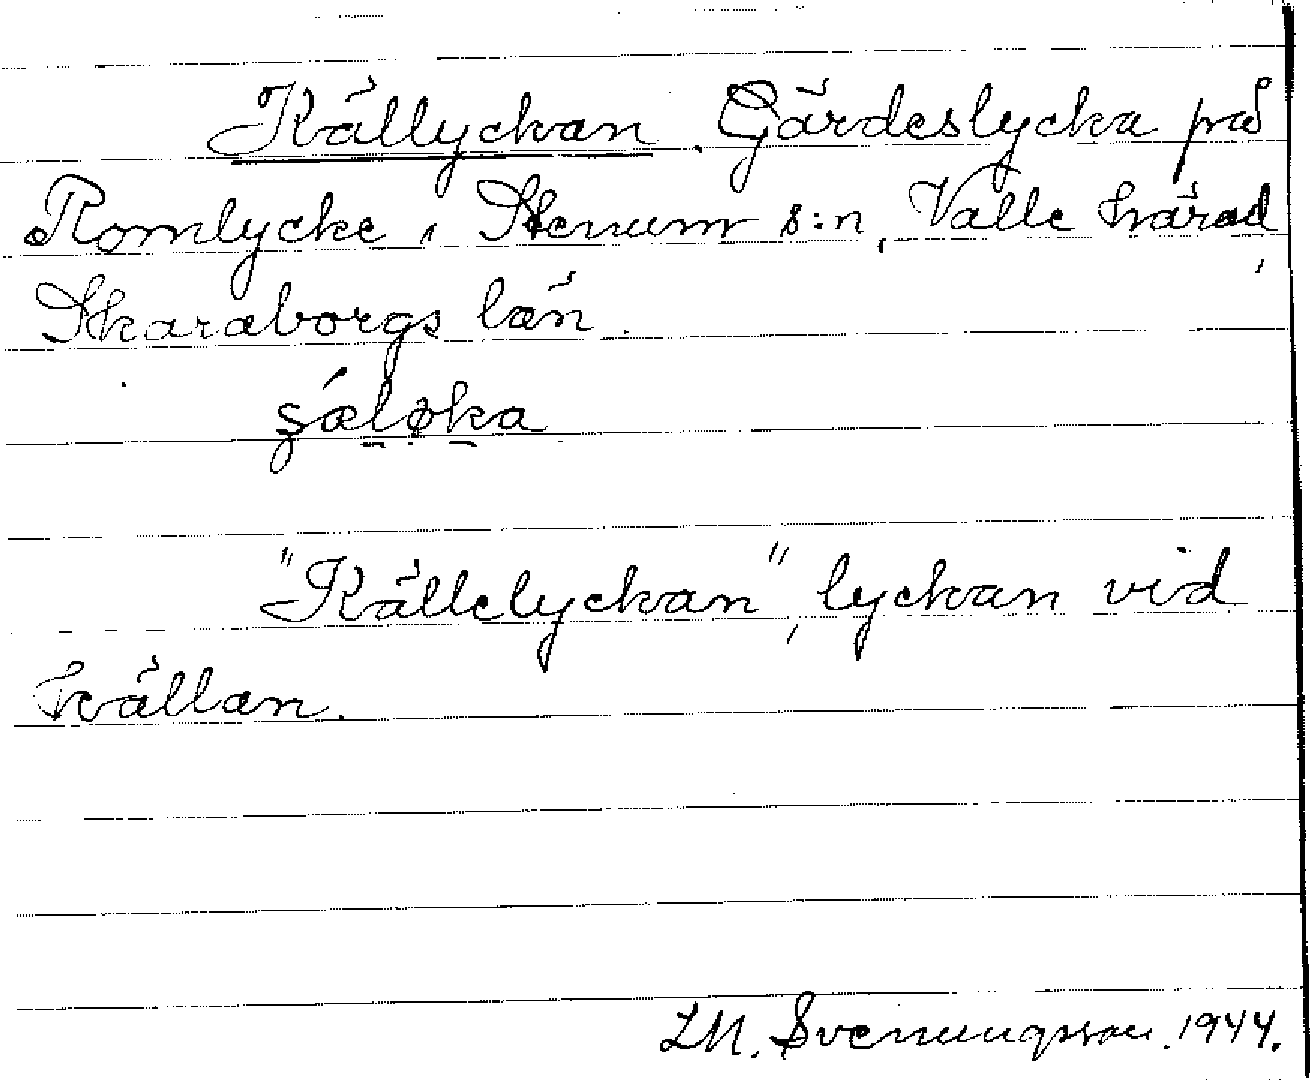 Källyckan. Gärdeslycka på
Romlycke i Stenum s:n, Valle härad,
Skaraborgs län.
şǽlø̣ka
"Källelyckan", lyckan vid
källan.
LM. Svenungsson. 1944.